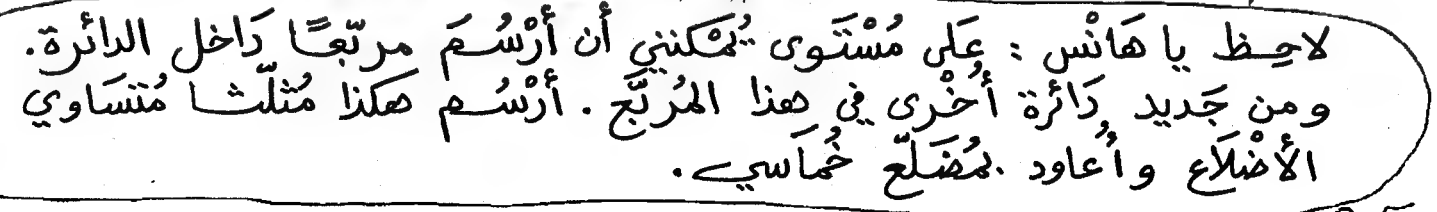 لاحِظ يا هَانْس : عَلى مُسْتَوى يُمْكنني أن أرْسُمَ مربّعًا دَاخل الدائرة.
ومن جَديد دَائرة أُخْرى في هذا المُربَّع . أرْسُم هكذا مُثلّثا مُتسَاوي
الأضْلاَع وأُعاود بمُضَلّع خُماَسي.